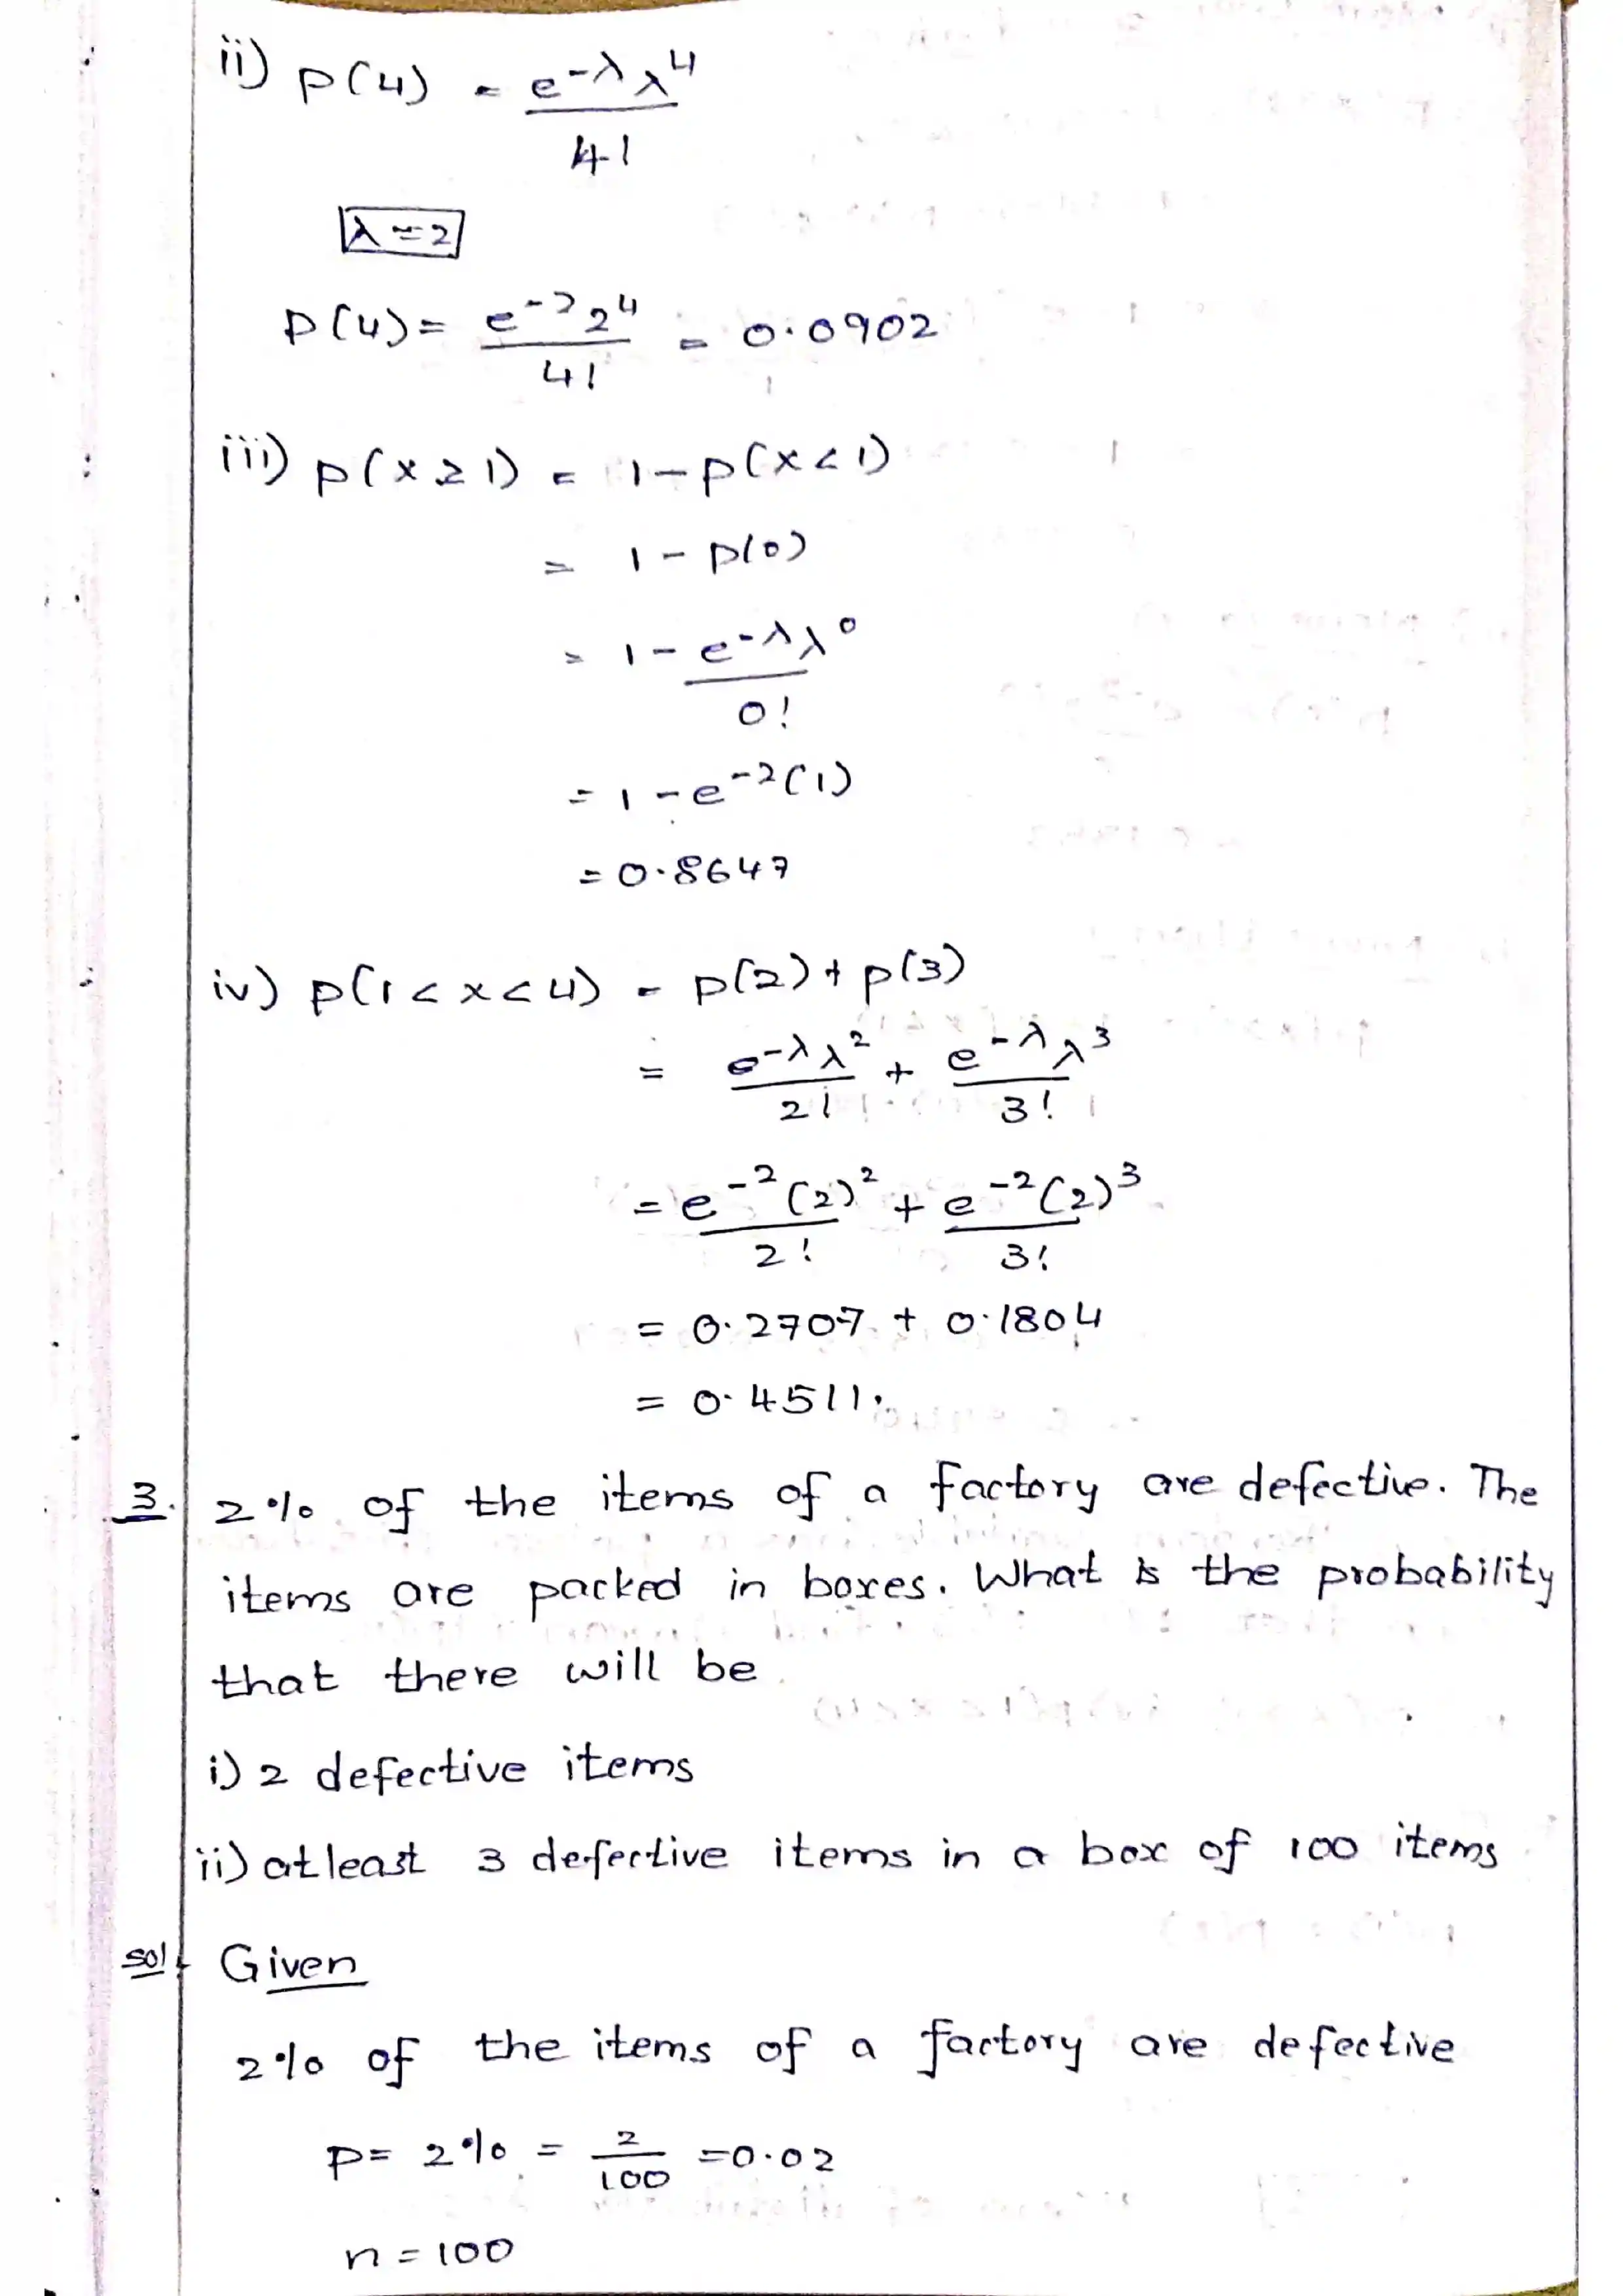 ii) P(4) = e^-λ λ^4
4!
λ = 2
P(4) = e^-2 2^4 = 0.0902
4!
iii) P(x ≥ 1) = 1-P(x < 1)
= 1 - P(0)
= 1 - e^-λ λ^0
0!
= 1 - e^-2 (1)
= 0.8647
iv) P(1 < x < 4) = P(2) + P(3)
= e^-λ λ^2 + e^-λ λ^3
2! 3!
= e^-2 (2)^2 + e^-2 (2)^3
2! 3!
= 0.2707 + 0.1804
= 0.4511.
3. 2% of the items of a factory are defective. The
items are packed in boxes. What is the probability
that there will be
i) 2 defective items
ii) atleast 3 defective items in a box of 100 items
sol Given
2% of the items of a factory are defective
P = 2% = 2/100 = 0.02
n = 100